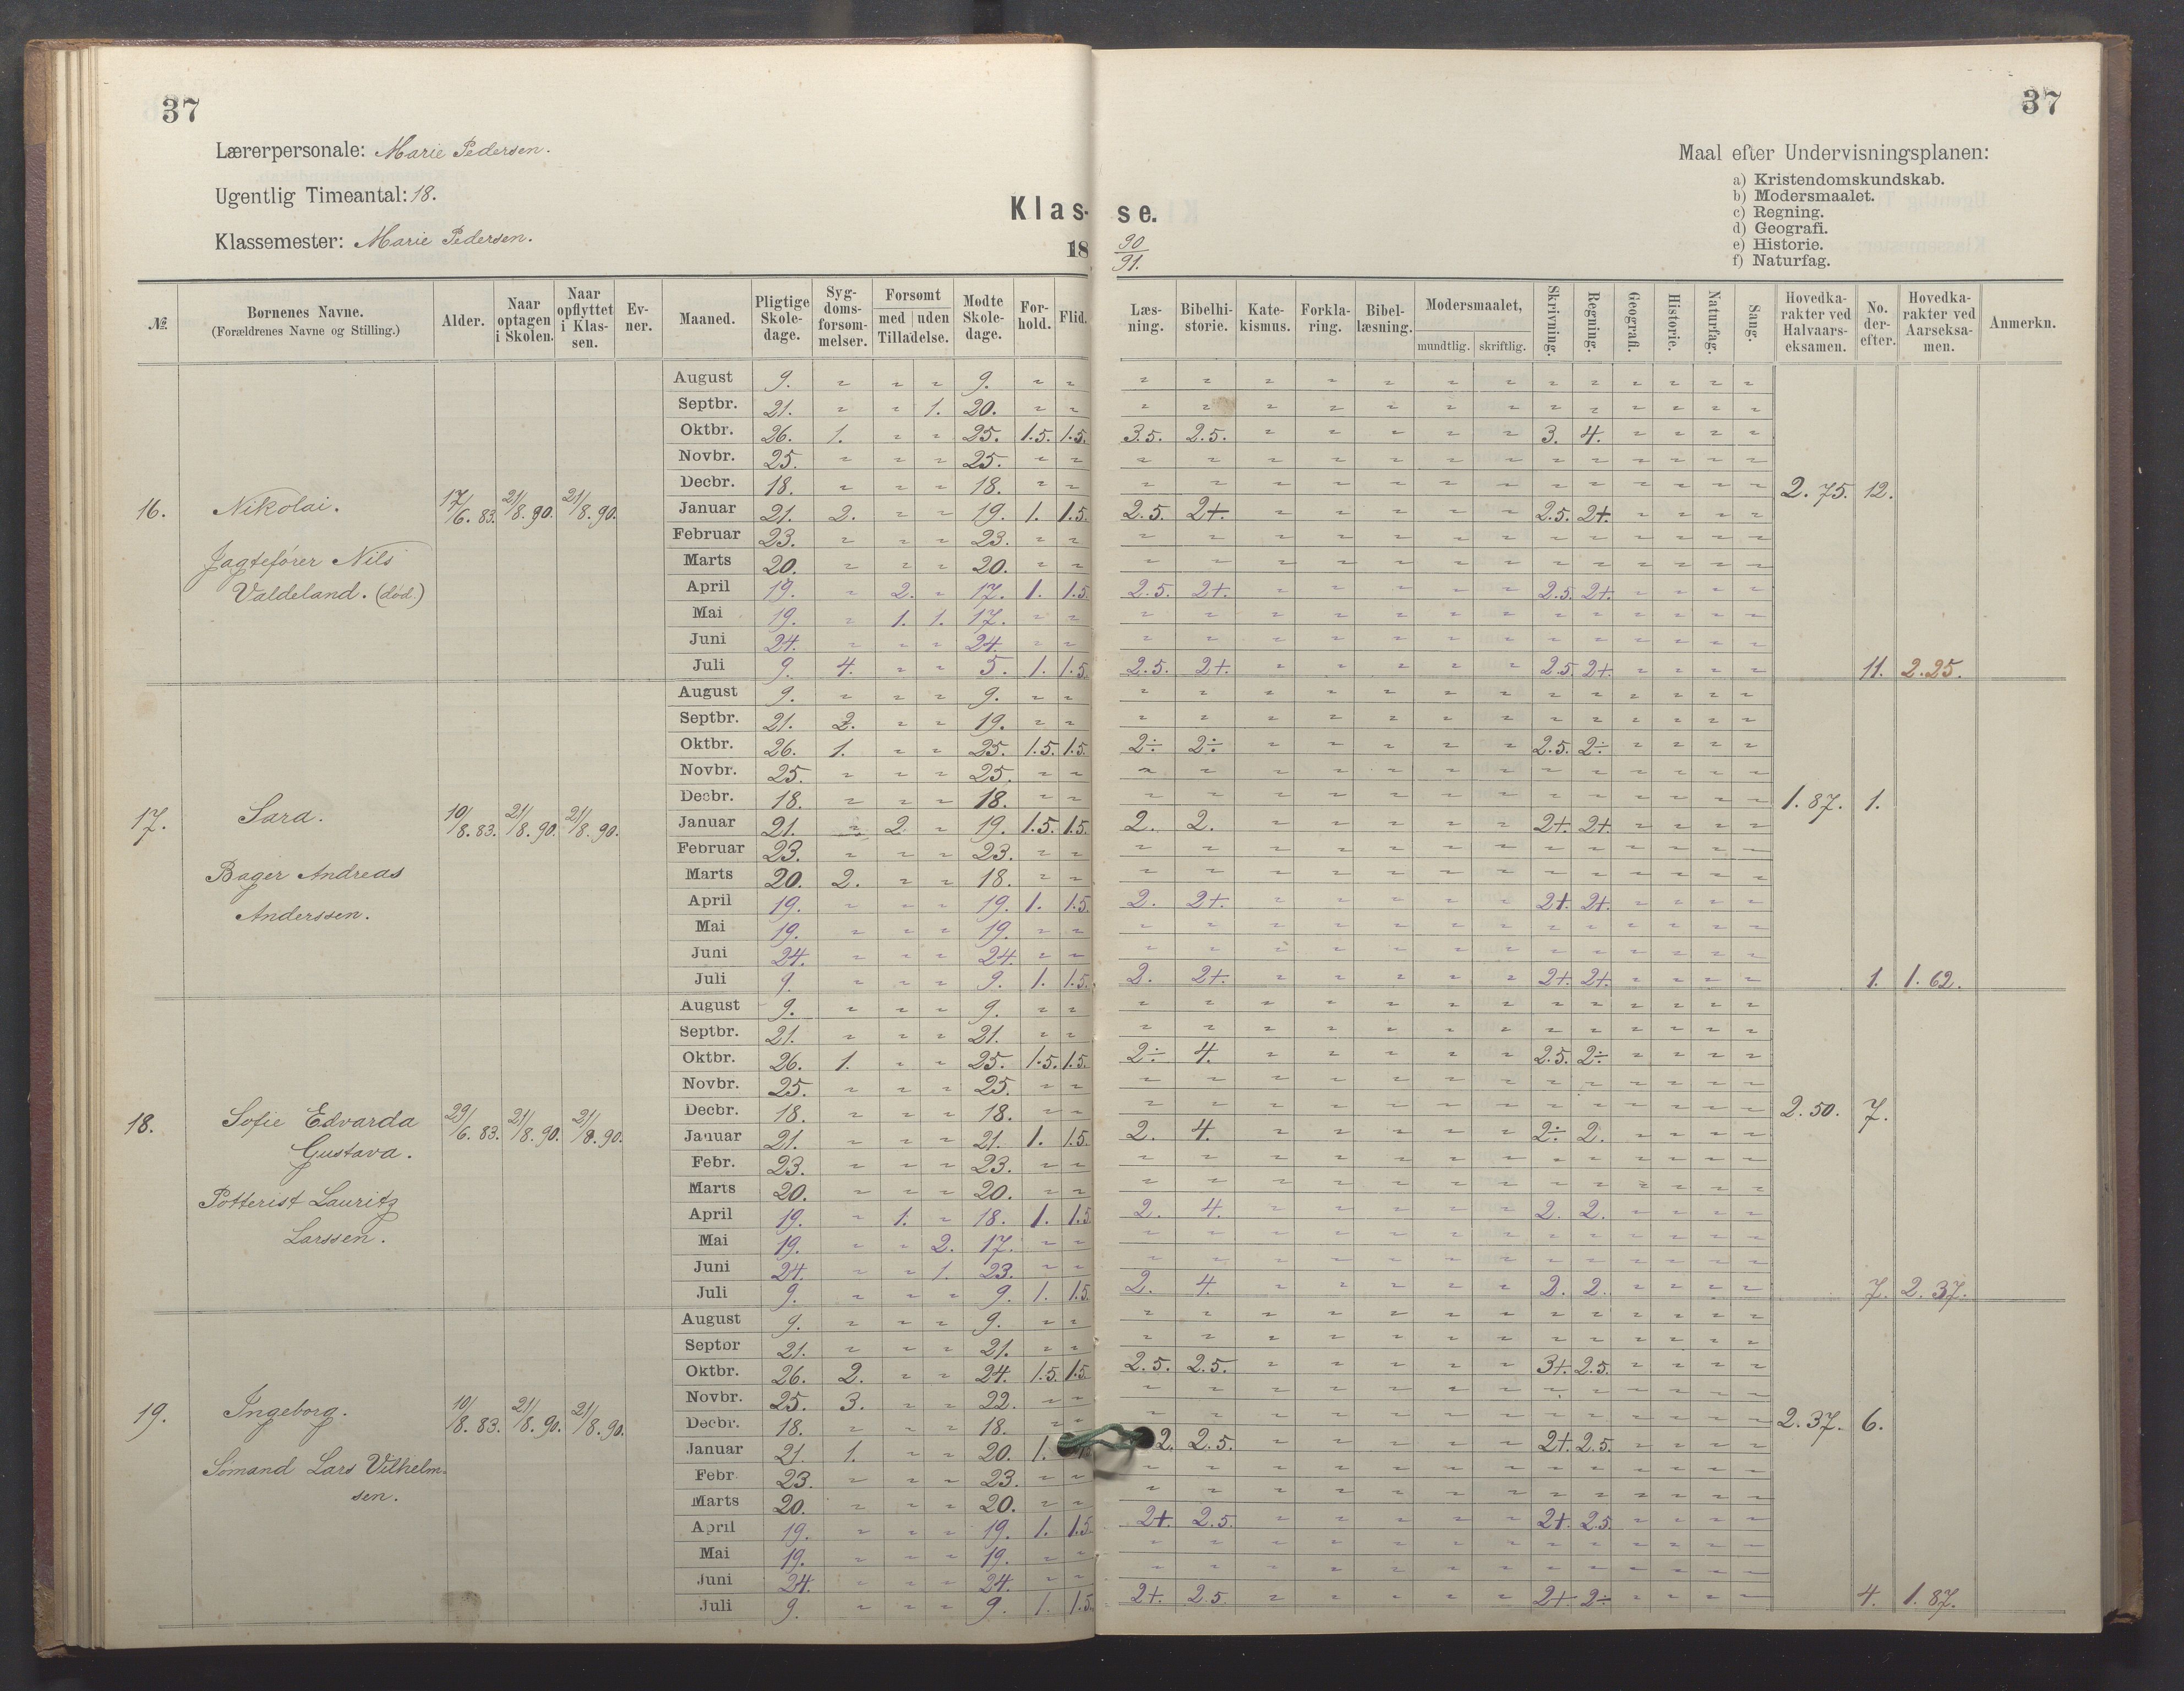 37
Lærerpersonale: Marie Pedersen.
Ugentlig Timeantal: 18.
Klassemester: Marie Pedersen.
Klas-
18
37
Maal efter Undervisningsplanen:
a) Kristendomskundskab.
b) Modersmaalet.
c) Regning.
d) Geografi.
e) Historie.
f) Naturfag.
se.
90/91.
№ Bornenes Navne. (Forældrenes Navne og Stilling.) Alder. Naar optagen i Skolen. Naar opflyttet i Klassen. Evner. Maaned. Pligtige Skoledage. Sygdomsforsommelser. Forsomt med uden Tilladelse. Modte Skoledage. Forhold. Flid. Læsning. Bibelhistorie. Katekismus. Forklaring. Bibellæsning. Modersmaalet, mundtlig. skriftlig. Skrivning. Regning. Geografi. Historie. Naturfag. Sang. Hovedkarakter ved Halvaarseksamen. No. derefter. Hovedkarakter ved Aarseksamen. Anmerkn.
16. Nikolai. 17/6. 83. 21/8. 90. 21/8. 90.
Jagtefører Nils
Valdeland. (død)
August 9. " " " 9. " "
Septbr. 21. " " 1. 20. " "
Oktbr. 26. 1. " " 25. 1.5. 1.5. 3.5. 2.5. " " " " " 3. 4. " " " "
Novbr. 25. " " " 25. " "
Decbr. 18. " " " 18. " " 2.75. 12.
Januar 21. 2. " " 19. 1. 1.5. 2.5. 2+. " " " " " 2.5. 2+. " " " "
Februar 23. " " " 23. " "
Marts 20. " " " 20. " "
April 19. " 2. " 17. 1. 1.5. 2.5. 2+. " " " " " 2.5. 2+. " " " "
Mai 19. " 1. 1. 17. " "
Juni 24. " " " 24. " "
Juli 9. 4. " " 5. 1. 1.5. 2.5. 2+. " " " " " 2.5. 2+. " " " " 11. 2.25.
17. Sara. 10/8. 83. 21/8. 90. 21/8. 90.
Bager Andreas
Anderssen.
August 9. " " " 9. " "
Septbr. 21. 2. " " 19. " "
Oktbr. 26. 1. " " 25. 1.5. 1.5. 2÷ 2÷ " " " " " 2.5. 2÷ " " " "
Novbr. 25. " " " 25. " "
Decbr. 18. " " " 18. " " 1.87. 1.
Januar 21. " 2. " 19. 1.5. 1.5. 2. 2. " " " " " 2+. 2+. " " " "
Februar 23. " " " 23. " "
Marts 20. 2. " " 18. " "
April 19. " " " 19. 1. 1.5. 2. 2+. " " " " " 2+. 2+. " " " "
Mai 19. " " " 19. " "
Juni 24. " " " 24. " "
Juli 9. " " " 9. 1. 1.5. 2. 2+. " " " " " 2+. 2+. " " " " 1. 1.62.
18. Sofie Edvarda 29/6. 83. 21/8. 90. 21/8. 90.
Gustava.
Potterist Lauritz
Larssen.
August 9. " " " 9. " "
Septbr. 21. " " " 21. " "
Oktbr. 26. 1. " " 25. 1.5. 1.5. 2÷ 4. " " " " " 2.5. 2÷ " " " "
Novbr. 25. " " " 25. " "
Decbr. 18. " " " 18. " " 2.50. 7.
Januar 21. " " " 21. 1. 1.5. 2. 4. " " " " " 2÷ 2. " " " "
Febr. 23. " " " 23. " "
Marts 20. " " " 20. " "
April 19. " 1. " 18. 1. 1.5 2. 4. " " " " " 2. 2. " " " "
Mai 19. " " 2. 17. " "
Juni 24. " " 1. 23. " "
Juli 9. " " " 9. 1. 1.5. 2. 4. " " " " " 2. 2. " " " " 7. 2.37.
19. Ingeborg. 10/8. 83. 21/8. 90. 21/8. 90.
Sømand Lars Vilhelm-
sen.
August 9. " " " 9. " "
Septbr 21. " " " 21. " "
Oktbr. 26. 2. " " 24. 1.5. 1.5. 2.5. 2.5. " " " " " 3+. 2.5. " " " "
Novbr. 25. 3. " " 22. " "
Decbr. 18. " " " 18. " " 2.37. 6.
Januar 21. 1. " " 20. 1. 2. 2.5. " " " " " 2+. 2.5. " " " "
Febr. 23. " " " 23. " "
Marts 20. " " " 20. " "
April 19. " " " 19. 1. 1.5. 2+. 2.5. " " " " " 2+. 2.5. " " " "
Mai 19. " " " 19. " "
Juni 24. " " " 24. " "
Juli 9. " " " 9. 1. 1.5. 2+. 2.5. " " " " " 2+ 2÷ " " " " 4. 1.87.